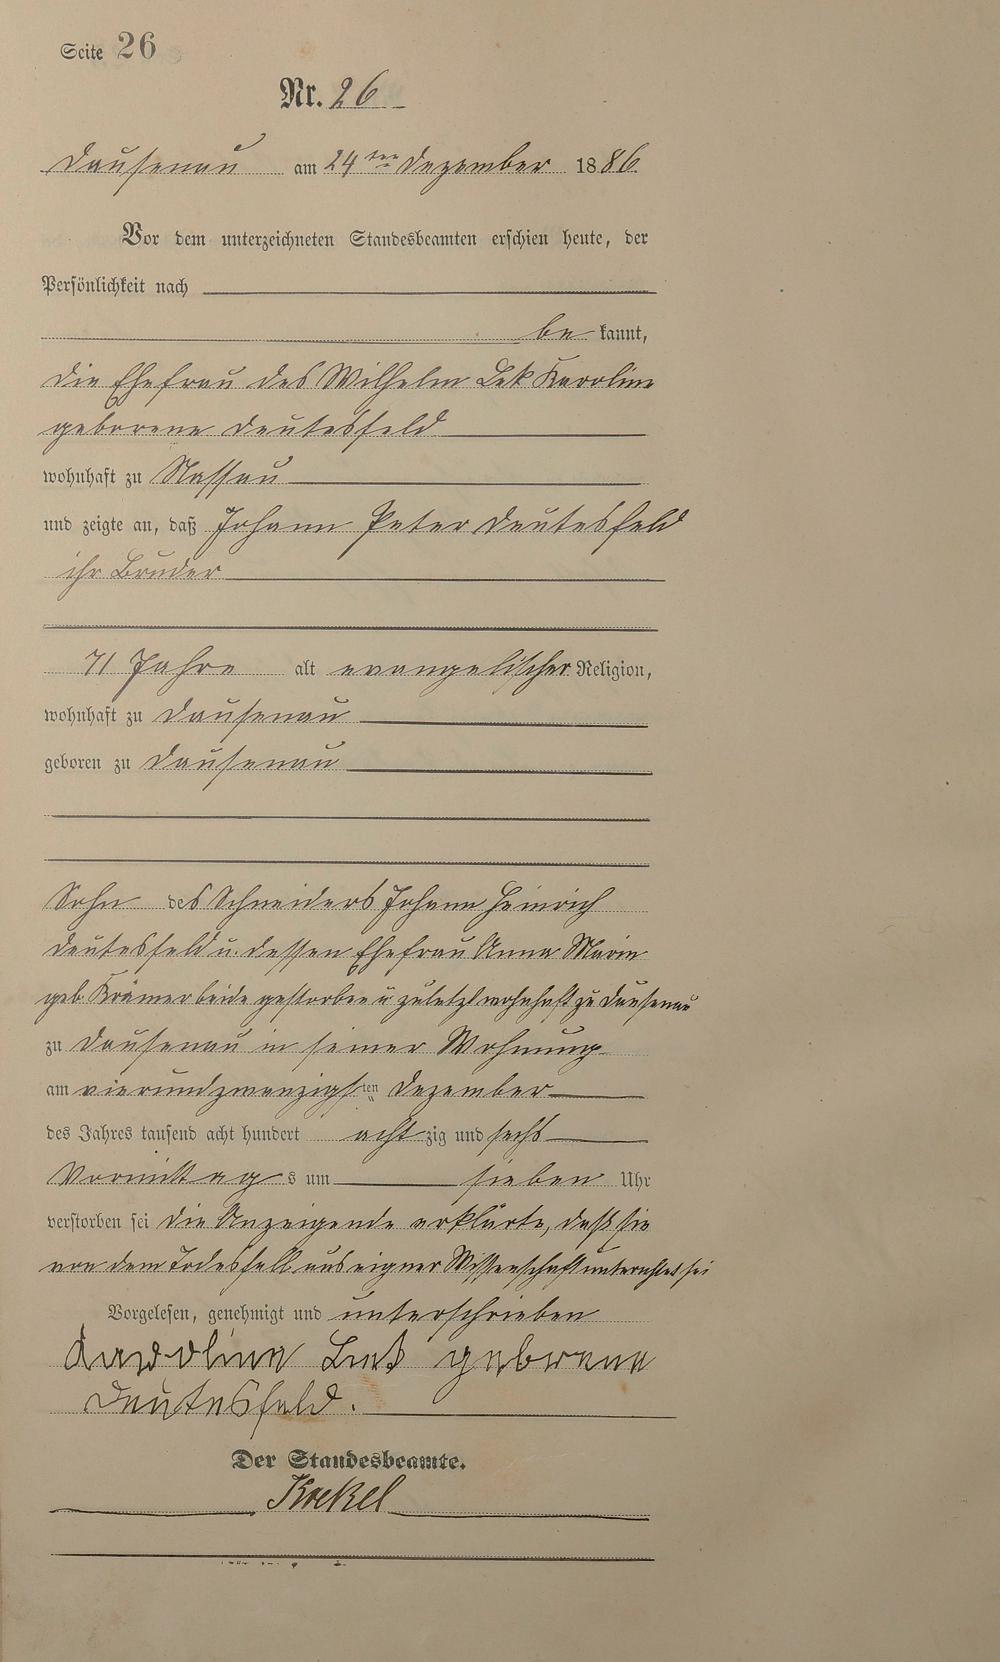 Seite 26
Nr. 26
Dausenau am 24ten Dezember 1886.
Vor dem unterzeichneten Standesbeamten erschien heute, der
Persönlichkeit nach
be kannt,
die Ehefrau des Wilhelm Karoline
geborene Deutesfeld
wohnhaft zu Nassau
und zeigte an, daß Johann Peter Deutesfeld
ihr Bruder
71 Jahre alt evangelischer Religion,
wohnhaft zu Dausenau
geboren zu Dausenau
Sohn des Schneiders Johann Heinrich
Deutesfeld u. dessen Ehefrau Anna Marie
geb. Krämer beide gestorben u zuletzt wohnhaft zu Dausenau
zu Dausenau in seiner Wohnung
am vierundzwanzigsten Dezember
des Jahres tausend acht hundert acht zig und sechs
Vormittags um sieben Uhr
verstorben sei die Anzeigende erklärte, daß sie
von dem Todesfall aus eigner Wissenschaft unterrichtet sei
Vorgelesen, genehmigt und unterschrieben
geborene
Deutesfeld.
Der Standesbeamte.